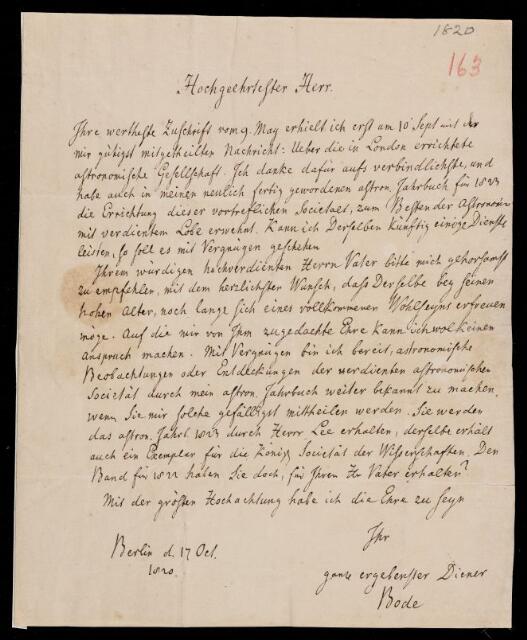 1820
163
Hochgeehrtester Herr.
Ihre wertheste Zuschrift vom 9. May erhielt ich erst am 10 Sept mit der
mir gütigst mitgetheilten Nachricht: Ueber die in London errichtete
astronomische Gesellschaft. Ich danke dafür aufs verbindlichste, und
habe auch in meinen neulich fertig gewordenen astron. Jahrbuch für 1823
die Errichtung dieser vortreflichen Societaet, zum Besten der Astronomie
mit verdientem Lobe erwehnt. Kann ich Derselben künftig einige Dienste
leisten, so soll es mit Vergnügen geschehen
Ihrem würdigen hochverdienten Herrn Vater bitte mich gehorsamst
zu empfehlen, mit dem herzlichsten Wunsch, dass Derselbe bey seinen
hohen Alter, noch lange sich eines vollkommenen Wohlseyns erfreuen
möge. Auf die mir von Ihm zugedachte Ehre kann ich wol keinen
Anspruch machen. Mit Vergnügen bin ich bereit, astronomische
Beobachtungen oder Entdeckungen der verdienten astronomischen
Societät durch mein astron. Jahrbuch weiter bekannt zu machen,
wenn Sie mir solche gefälligst mittheilen werden. Sie werden
das astron. Jahrb. 1823 durch Herrn Lee erhalten, derselbe erhält
auch ein Exemplar für die Königl. Societät der Wissenschaften. Den
Band für 1822 haben Sie doch, für Ihren Hr Vater erhalten?
Mit der größten Hochachtung habe ich die Ehre zu seyn
Ihr
Berlin d. 17 Oct.
1820.
ganz ergebenster Diener
Bode